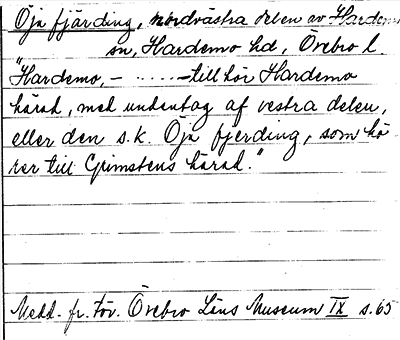 Öja fjärding, nordvästra delen av Hardemo
sn, Hardemo hd, Örebro l.
"Hardemo, – ..... – till hör Hardemo
härad, med undantag af vestra delen,
eller den s.k. Öja fjerding, som hö
rer till Grimstens härad."
Medd. fr. För. Örebro Läns Museum IX s. 65